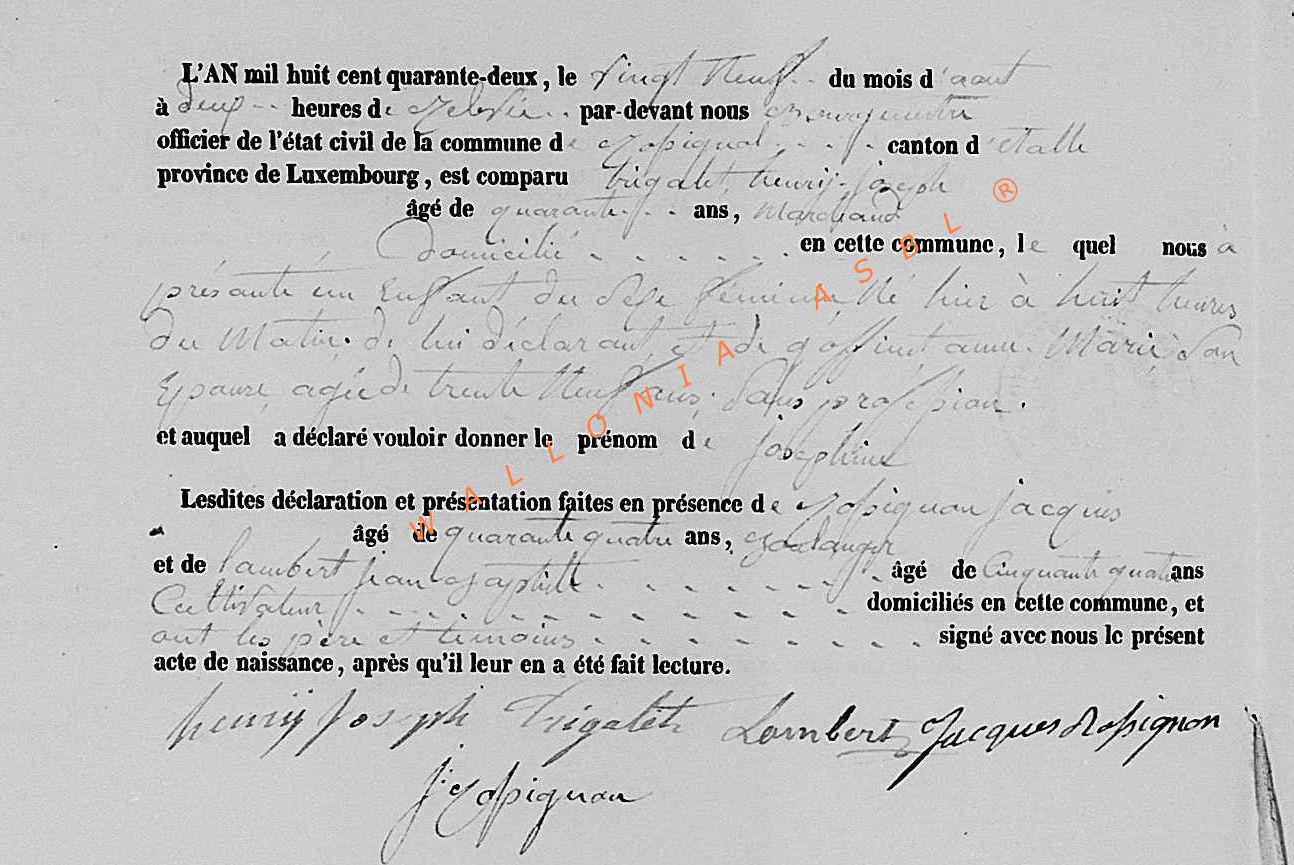 L'AN mil huit cent quarante-deux, le vingt neuf.. du mois d'aout
à deux .. heures de relevée .. par-devant nous Bourguemetre
officier de l'état civil de la commune de Rossignol . . . canton d'étalle
province de Luxembourg, est comparu trigalet, henrÿ-joseph
âgé de quarante . . ans, Marchand
Domicilié . . . . . . en cette commune, le quel nous à
présanté un Enfant du Sexe féminin, Né hier à huit heures
du Matin. de lui déclarant, et de goffinet anne. Marie, Son
Epouse, agée de trente Neuf ans, Sans profession.
et auquel a déclaré vouloir donner le prénom de josephine
Lesdites déclaration et présentation faites en présence de Rossignon jacques
âgé de quarante quatre ans, Boulanger
et de Lambert jean Baptiste . . . . . . . âgé de Cinquante quatre ans
Cultivateur . . . . . . . . . . domiciliés en cette commune, et
ont les père et témoins . . . . . . . . signé avec nous le présent
acte de naissance, après qu'il leur en a été fait lecture.
henrÿ Joseph Trigalet Lambert Jacques Rossignon
J. Rossignon
WALLONIA ASBL ®